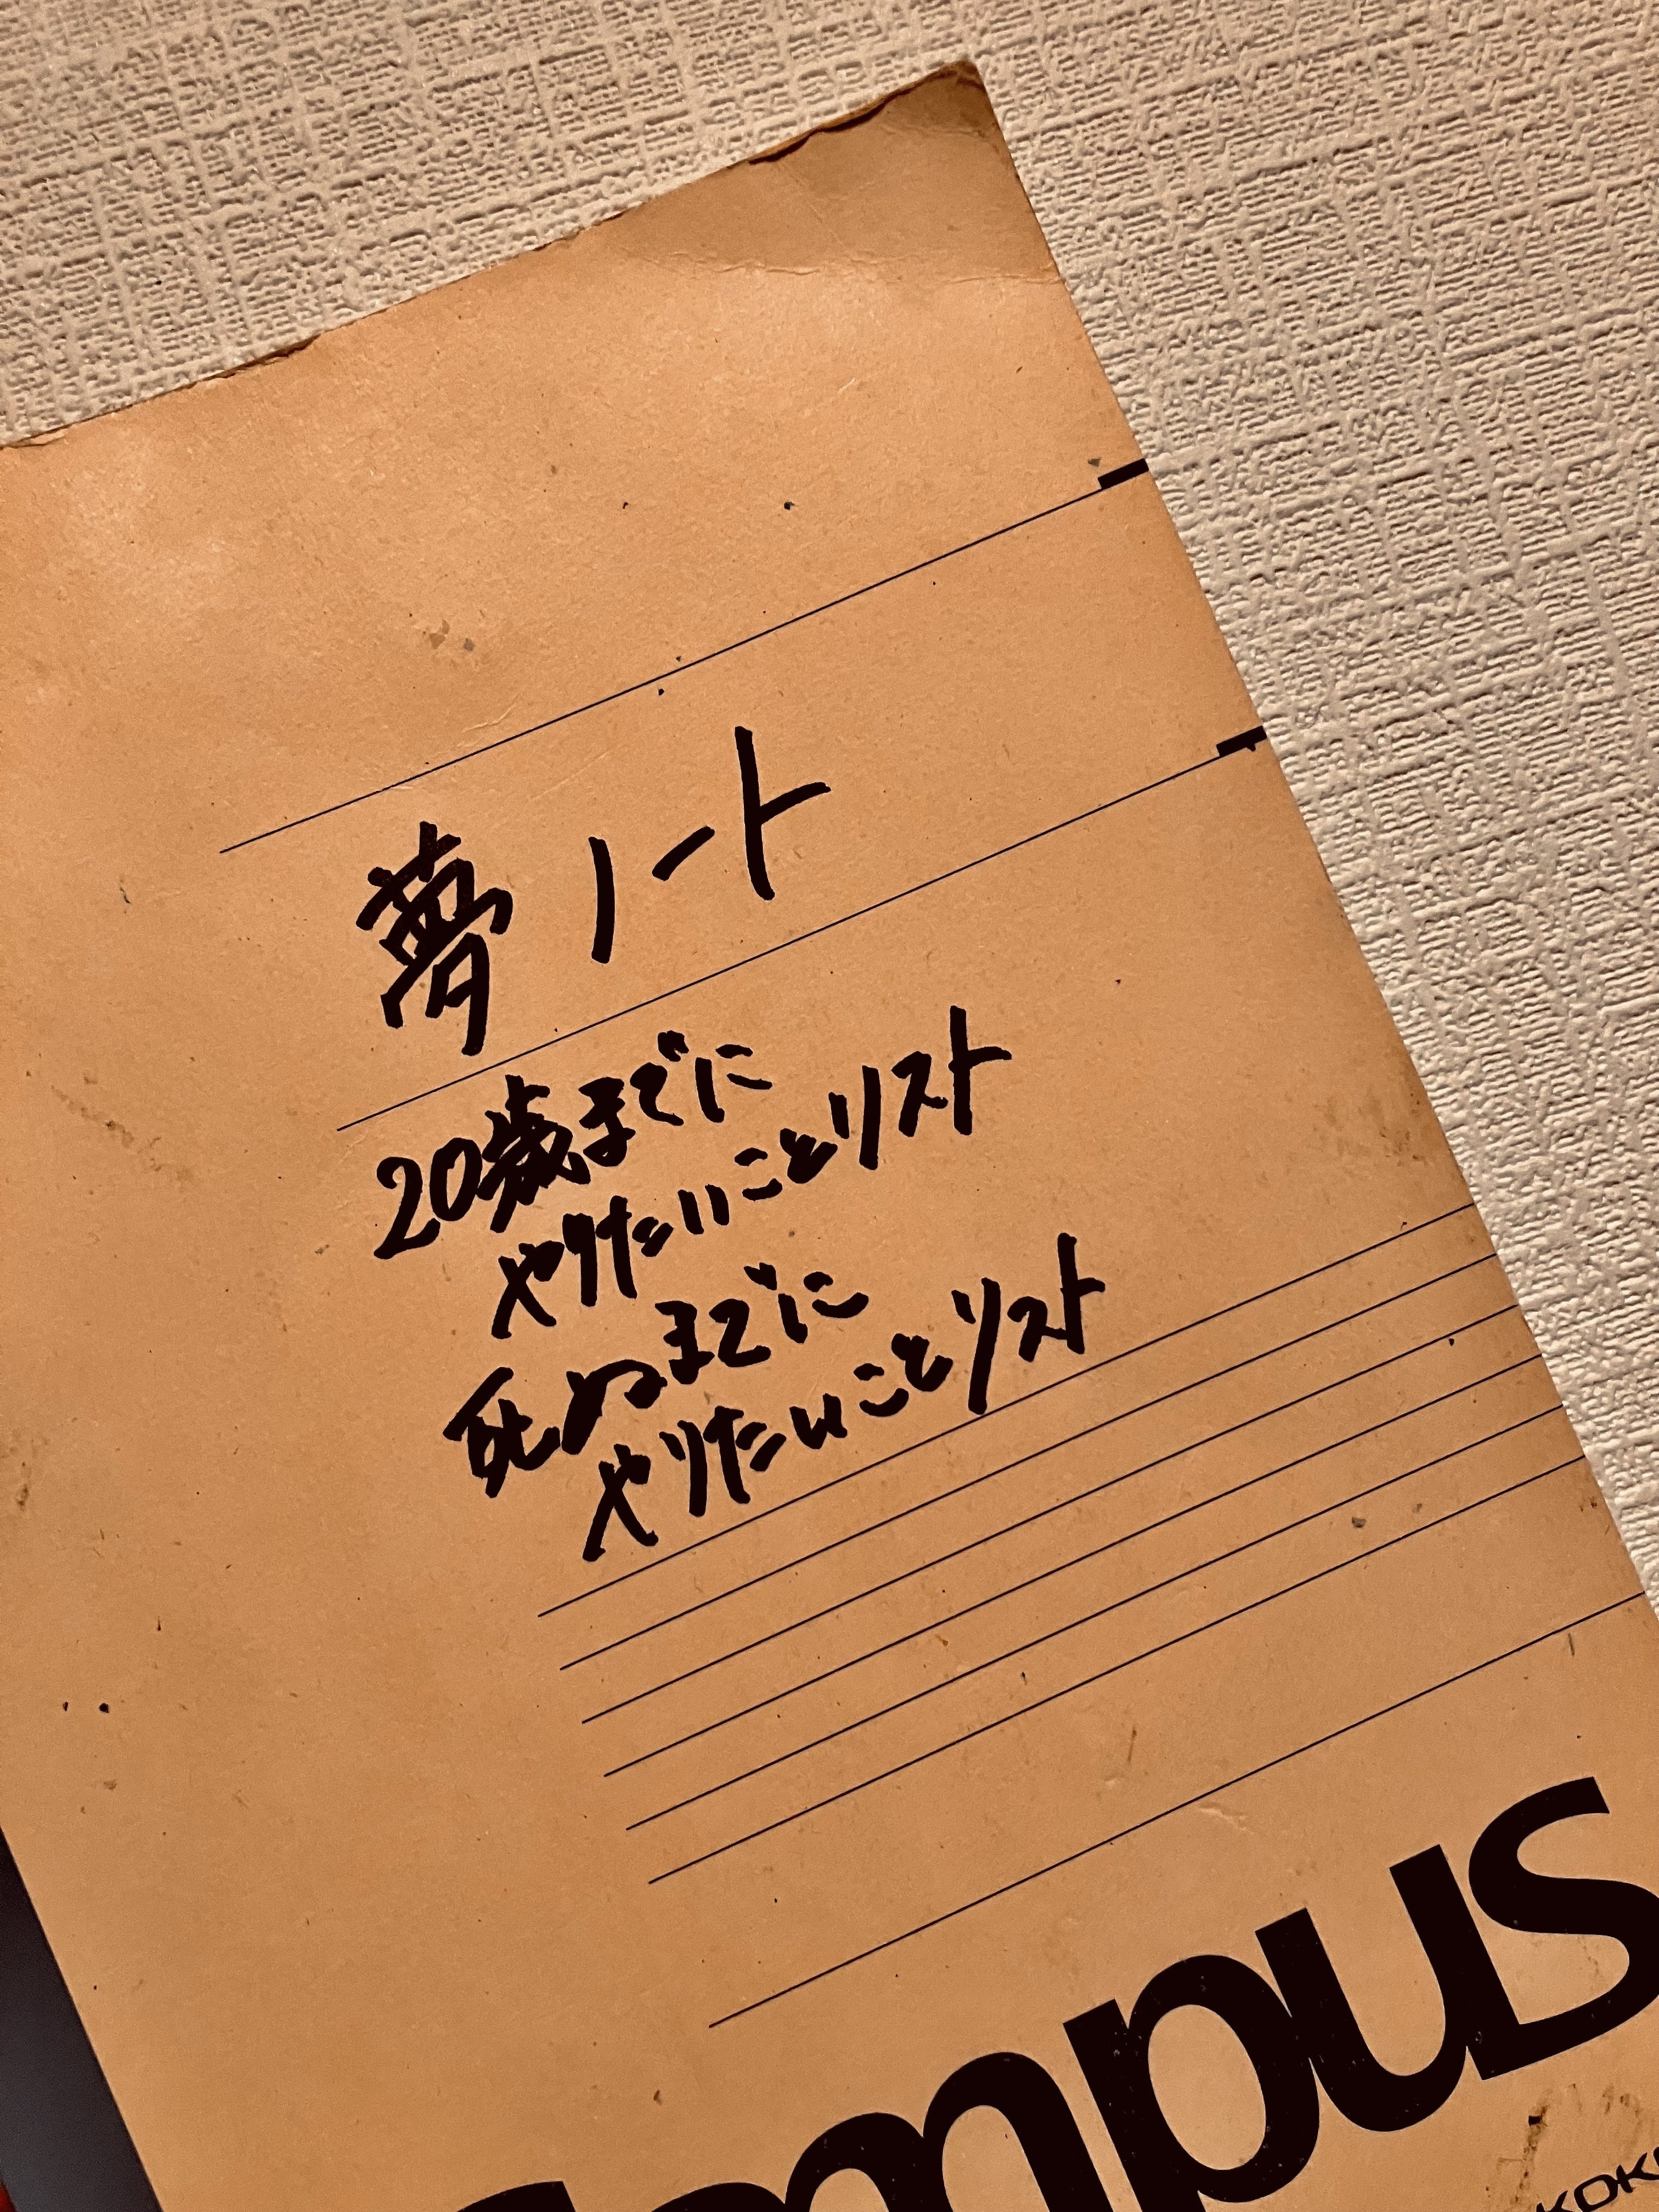 夢ノート
20歳までに
やりたいことリスト
死ぬまでに
やりたいことリスト
Campus